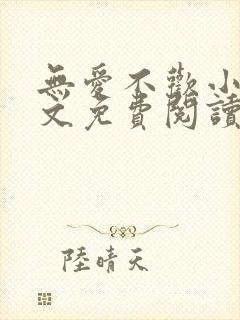 無愛不歡小
文免費閱讀
陸晴天